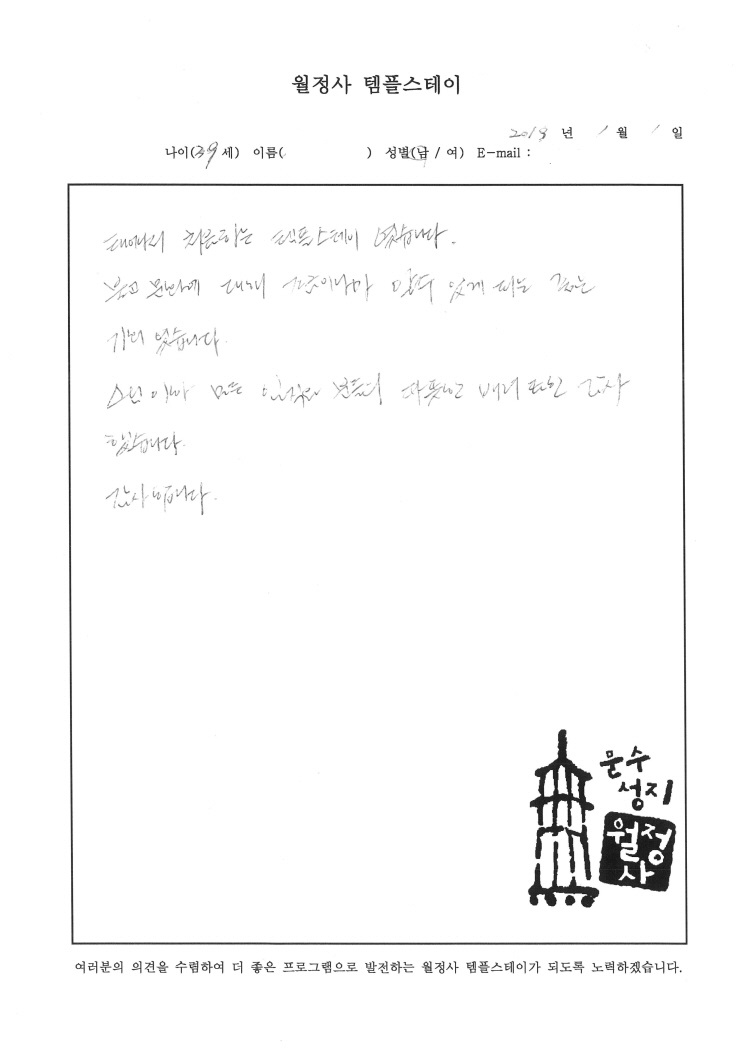 월정사 템플스테이
2018 년 1 월 1 일
나이(39세) 이름( ) 성별(남 / 여) E-mail :
태어나서 처음하는 템플스테이 였습니다.
불교 문화에 대해 조금이나마 알 수 있게 되는
기회 였습니다.
스님 이하 모든 분들의 배려 또한 감사
했습니다.
감사합니다.
문수
성지
월정
사
여러분의 의견을 수렴하여 더 좋은 프로그램으로 발전하는 월정사 템플스테이가 되도록 노력하겠습니다.